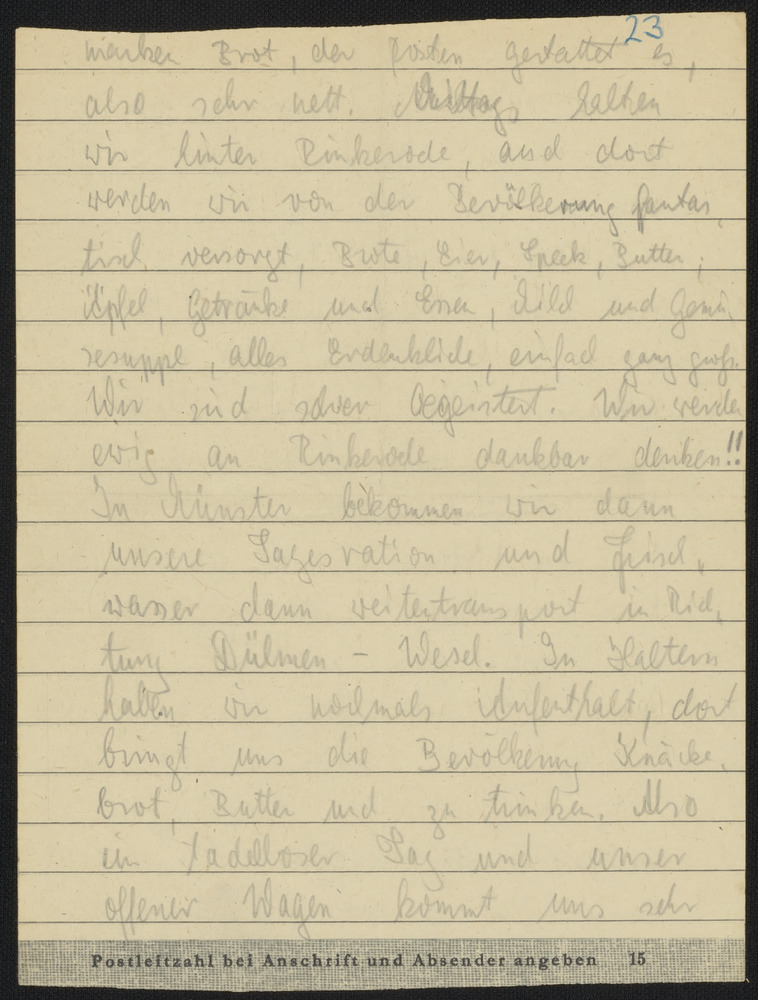 23
Brot, der Posten gestattet es,
also sehr nett. Mittags halten
wir hinter Rinkerode, und dort
werden wir von der Bevölkerung fantas,
tisch versorgt, Brote, Eier, Speck, Butter,
Äpfel, Getränke und Essen, Milch und Gemü
sesuppe, alles Erdenkliche, einfach ganz groß.
Wir sind schwer begeistert. Wir werden
ewig an Rinkerode dankbar denken!!
In Münster bekommen wir dann
unsere Tagesration und Frisch,
wasser dann weitertransport in Rich,
tung Dülmen - Wesel. In Haltern
haben wir nochmals Aufenthalt, dort
bringt uns die Bevölkerung Knäcke,
brot, Butter und zu trinken. Also
ein tadelloser Tag und unser
offener Wagen kommt uns sehr
Postleitzahl bei Anschrift und Absender angeben 15